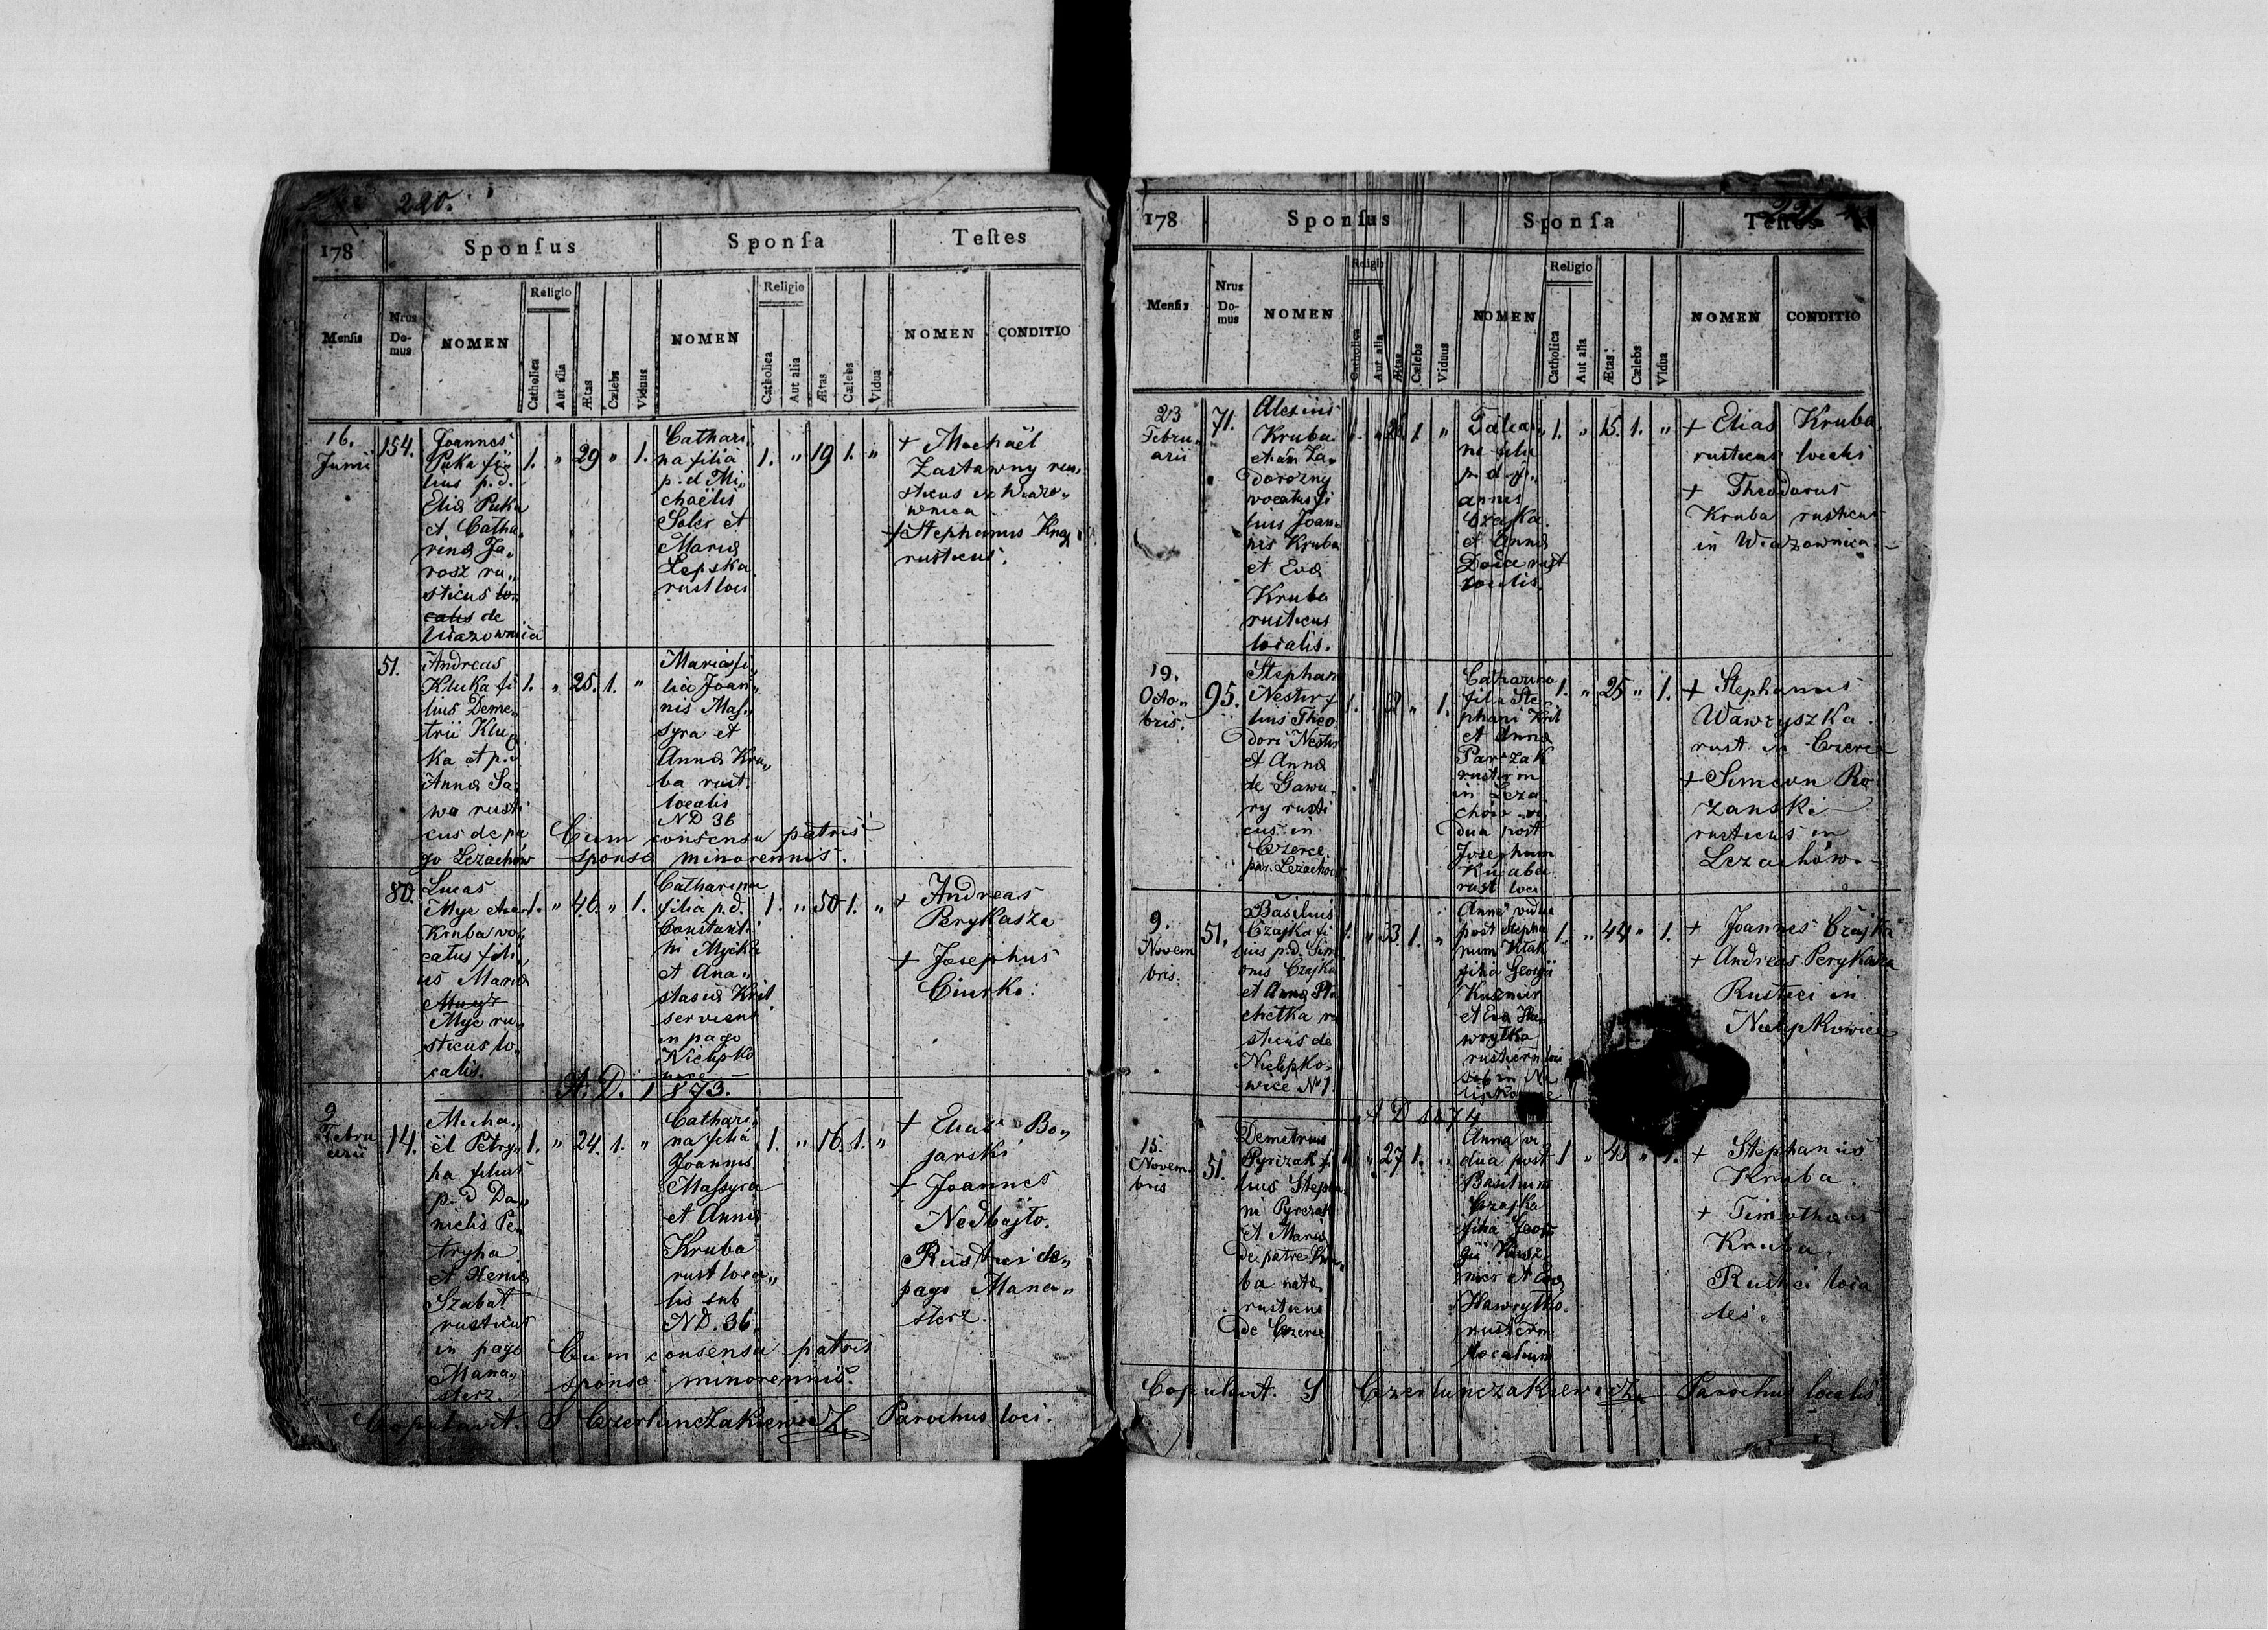 220.
178
Sponſus
Sponſa
Teſtes
Menſis
Nrus Domus
NOMEN
Religio
Catholica
Aut alia
Ætas
Cælebs
Viduus
NOMEN
Religio
Catholica
Aut alia
Ætas
Cælebs
Vidua
NOMEN
CONDITIO
16.
Junii
154.
Joannes
Puka fi„
lius p.d.
Eliæ Puka
et Catha„
rinæ Ja„
rosz ru„
sticus lo„
calis de
Wiazownica
1. „ 29 „ 1.
Cathari
na filia
p.d Mi„
chaëlis
et
Mariæ
Lepska
rust loci
1. „ 19 1. „
+ Michaël
Zastawny rus„
sticus in Wiazo„
wnica
+ Stephanus
rusticus.
51.
Andreas
Kluka fi
lius Deme„
trii Klu„
ka et p.d
Annæ Sa„
wa rusti
cus de pa
go Lezachów
1. „ 25. 1. „
Maria fi„
lia Joan„
nis Mas„
syra et
Annæ Kru„
ba rust.
localis
ND 36
Cum consensu patris
sponsæ minorennis.
80.
Lucas
Myc
Kruba vo„
catus fili„
us Mariæ
Myc ru„
sticus lo„
calis.
1. „ 46. „ 1.
Catharina
filia p.d.
Constanti„
ni Mycka
et Ana„
stasiæ Kril
serviens
in pago
Nielipko
wice
1. „ 50 1. „
+ Andreas
Perykasza
+ Josephus
Ciurko:
A. D. 1873.
9
Februarii
14.
Micha„
ël Petry„
ha filius
p.d Da„
nielis Pe„
tryha
et Xeniæ
Szabat
rusticus
in pago
Mana„
sterz
1. „ 24. 1. „
Cathari„
na filia
Joannis
Massyra
et Annæ
Kruba
rust loca„
lis sub
ND. 36.
1. „ 16. 1. „
+ Elias Bo„
jarski
+ Joannes
Nedbajło.
Rustici de„
pago Mana„
sterz.
Cum consensu patris
sponsæ minorennis.
Copulavit. S Czerlunczakiewicz Parochus loci.
221
178
Sponſus
Sponſa
Teſtes
Menſis
Nrus Domus
NOMEN
Religio
Catholica
Aut alia
Ætas
Cælebs
Viduus
NOMEN
Religio
Catholica
Aut alia
Ætas
Cælebs
Vidua
NOMEN
CONDITIO
23
Febru„
arii
71.
Alexius
Kruba
etiam Za„
dorozny
vocatus fi
lius Joan„
nis Kruba
et Evæ
Kruba
rusticus
localis.
1. „ 1 „
na filia
p. d. Jo„
annis
Czajka
et Annæ
rust
localis.
1. „ 15. 1. „
+ Elias Kruba
rusticus localis
+ Theodorus
Kruba rusticus
in Wiazownica
19.
Octo„
bris.
95.
Stephan
Nestir fi
lius Theo
dori Nestir
et Annæ
de Gawu„
ry rusti
cus in
Czerce
par. Lezachow
1. „ „ 1.
Catharina
filia Ste„
phani Kril
et Annæ
Parzak
in Leza
chow vi
dua post
Josephum
Kruba
rust loci
1. „ 25 „ 1.
+ Stephanus
Wawryszka
rust in Czerce
+ Simeon Ro
zanski
rusticus in
Lezachów.
9.
Novem
bris.
51.
Basilius
Czajka fi
lius p.d. Sim
onis Czajka
et Annæ
chetka ru
sticus de
Nielipko„
wice N 1.
1. „ 33 1. „
Anna vidua
post Stepha
num Kłak
filia Georgii
Kusznier
et Evæ Ha„
wryłka
1. „ 44 „ 1.
+ Joannes Czajka
+ Andreas Perykasza
Rustici in
Nielipkowice
A D 1874
15.
Novem„
bris
51.
Demetrius
Pyrczak fi
lius Stepha
ni Pyrczak
et Mariæ
de patre Kru„
ba nata
rusticus
de Czerce
„ 27 1. „
Anna vi
dua post
Basilium
Czajka
filia Geor
gii Kusz„
nier et Evæ
Hawryłko.
localium
1 „ 45 „ 1.
+ Stephanus
Kruba.
+ Timotheus
Kruba.
Rustici loca
les.
Copulavit. S Czerlunczakiewicz Parochus localis